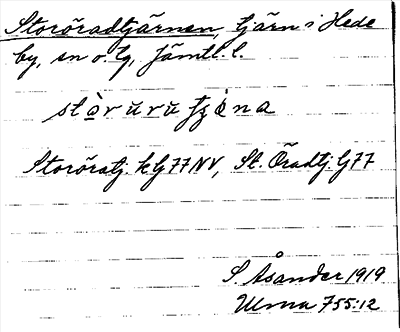 Storöradtjärnen, tjärn i Hede
by, sn o. tg, Jämtl. l.
Storöratj. k G 77 NV, St. Öradtj. G 77
S. Åsander 1919
Ulma 755:12